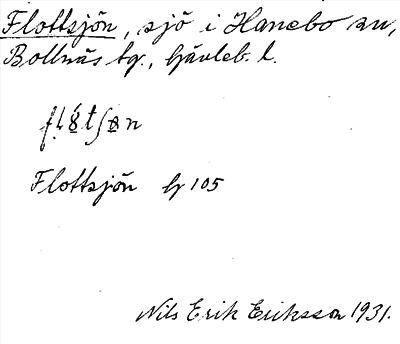 Flottsjön, sjö i Hanebo sn,
Bollnäs tg., Gävleb. l.
Flottsjön hy 105
Nils Erik Eriksson 1931.